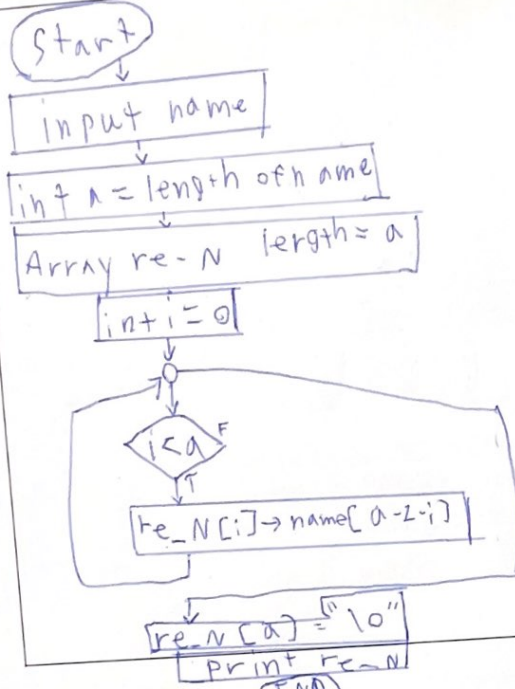 Start
input name
int a = length of name
Array re-N length = a
int i = 0
i<a F
T
re_N[i]→name[a-1-i]
re_N[a] = "\0"
print re_N
END